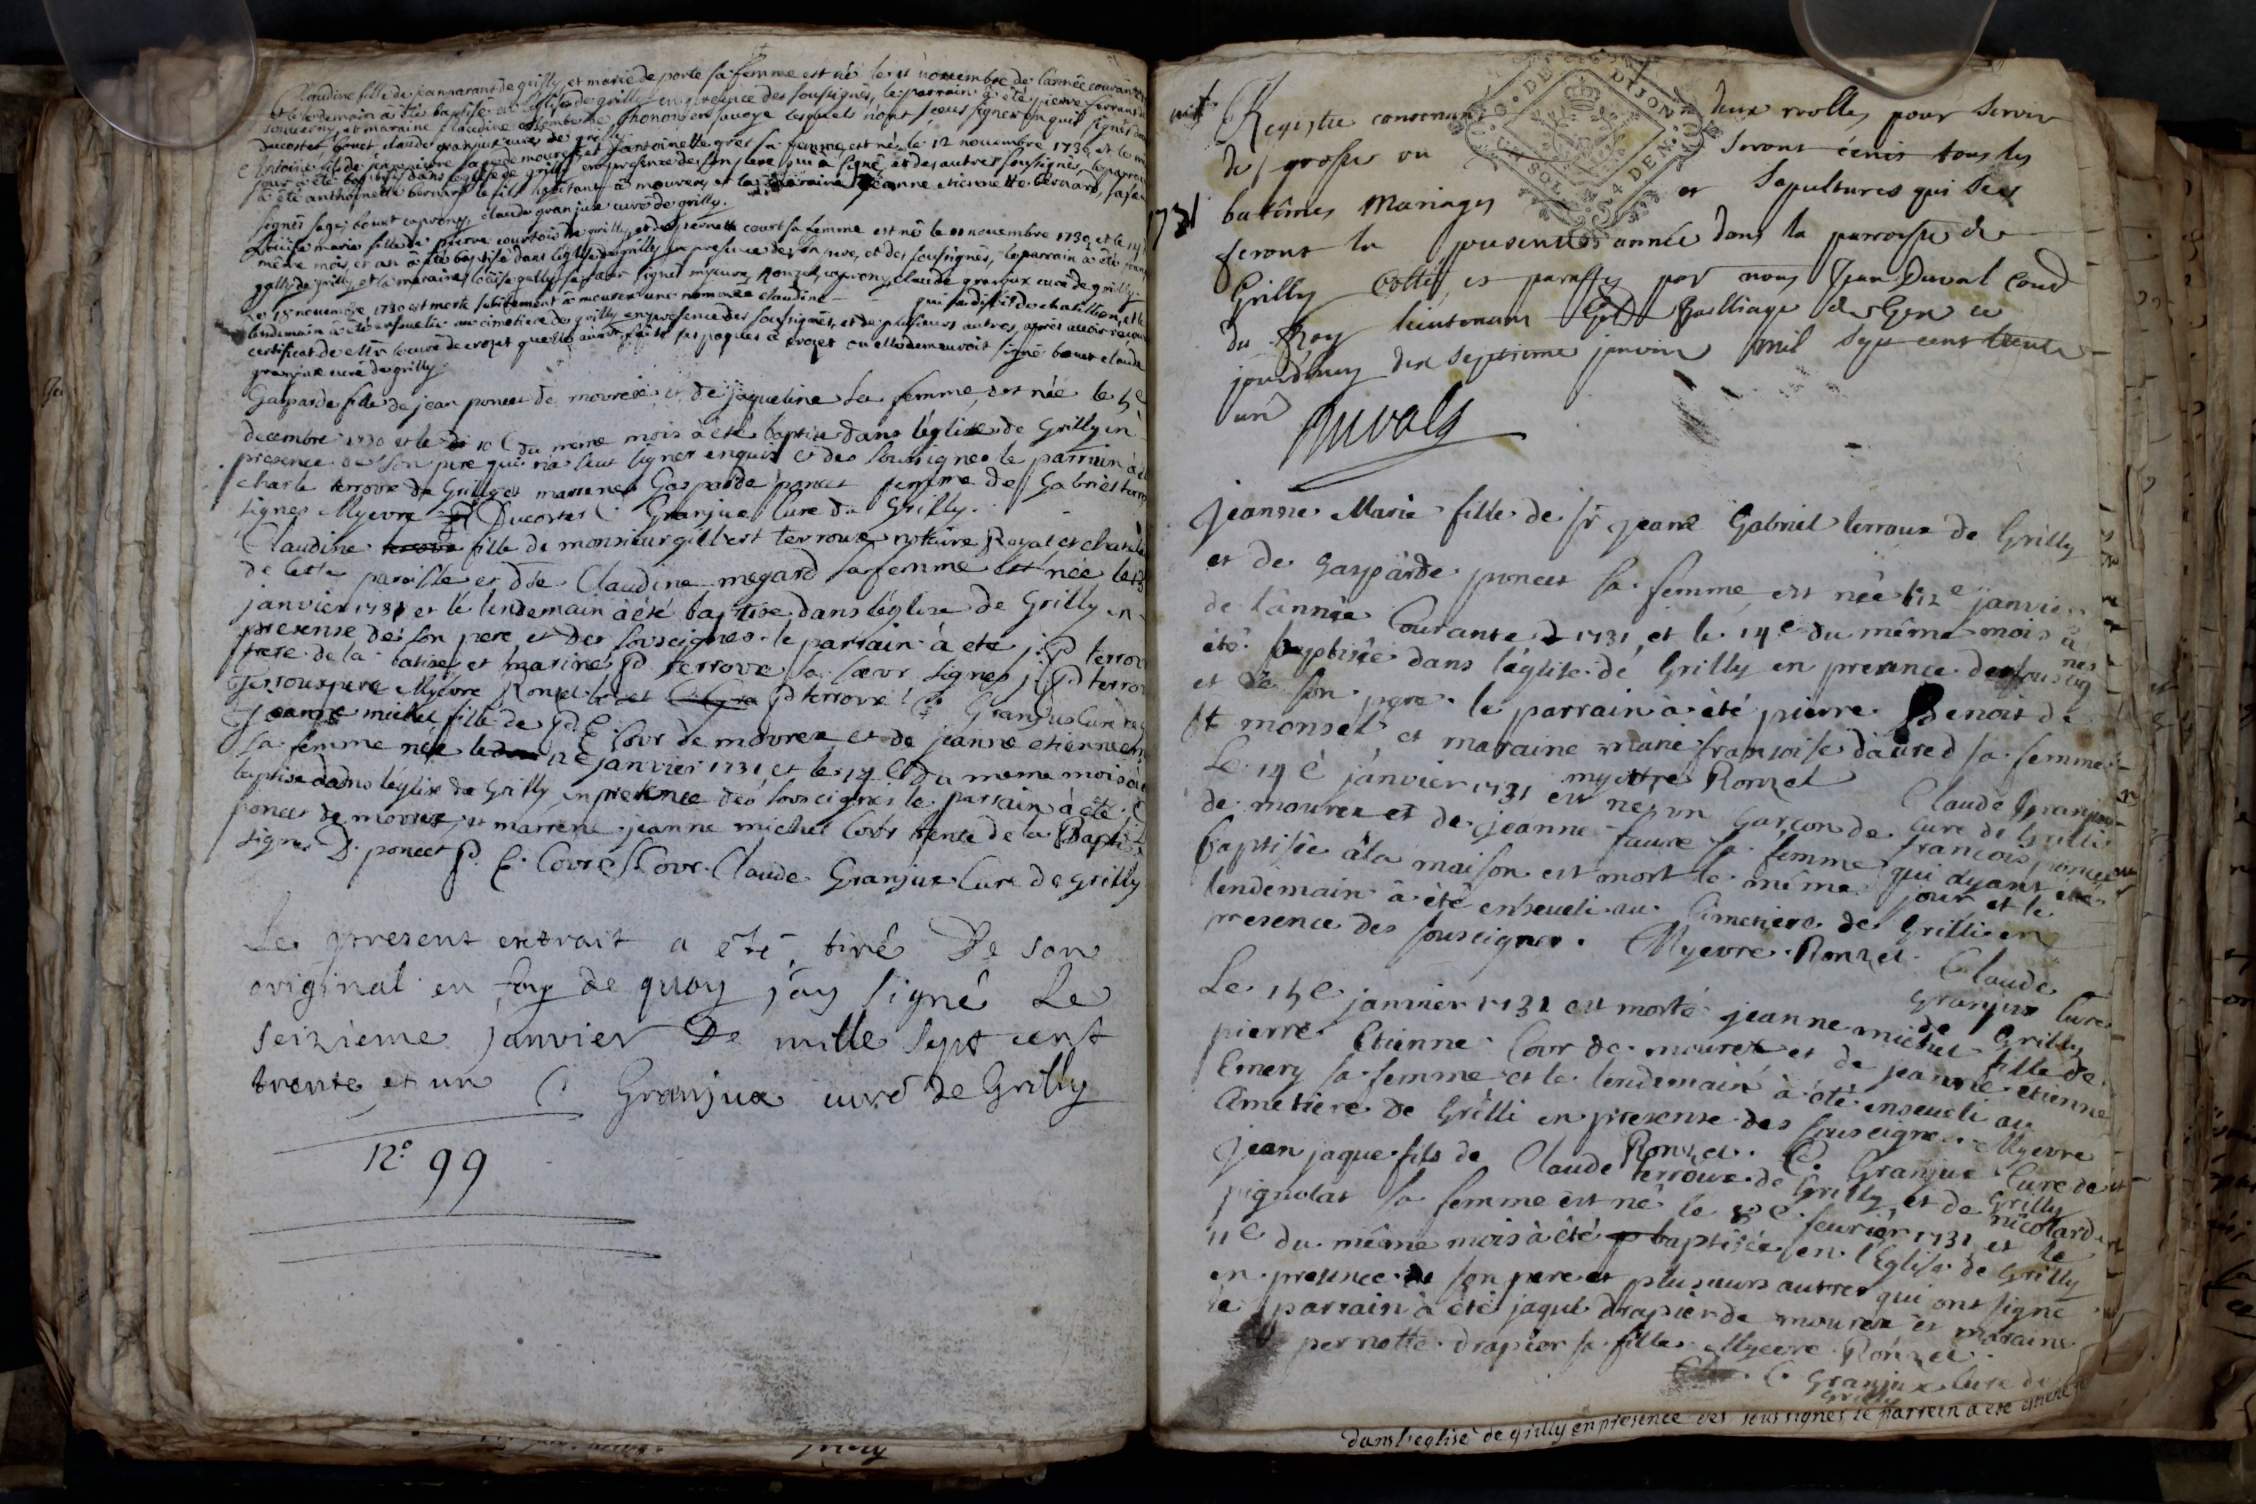 Claudine fille de jean marant de grilly et marie de porte sa femme est né le 11 novembre de l'année courante
et le lendemain à été baptisé en l'église de grilly en presence des soussignés, le parrain à été pierre
et maraine claudine thonon en savoye lesquels n'ont sceus signer enquis signés
ducoster bouet claude granjux curé de grilly
Antoine fils de jean pierre sage de mourex et d'antoinette gret sa femme est né le 12 novembre 1730 et le
jour à été baptisé dans l'église de grilly en presence de son pere qui a signé et des autres soussignés, le parrain
à été anthoinette bernard le fils habitant à mourex et la maraine jeanne etiennette bernard, sa
signés sage bouet caprony, claude granjux curé de grilly.
Louise marie fille de pierre courtois de grilly et de pernette court sa femme est né le 11 novembre 1730 et le 14
même mois et an à été baptisé dans l'église de grilly en presence de son pere, et des soussignés, le parrain à été
gally de grilly et la maraine loüise gally sa sœur signés myevre, Ronzel, caprony, claude granjux curé de grilly
Le 18 novembre 1730 est morte subitement à mourex une nommée claudine qui se disoit de chatillion, et le
lendemain à été ensevelie au cimetiere de grilly en presence des soussignés, et de plusieurs autres, après avoir receu
certificat de mr le curé de crozet quelle avoit faite ses paques à crozet ou elle demeuroit signé bouet claude
granjux curé de grilly
Gasparde fille de jean poncet de mourex et de jaqueline sa femme, est née le 5e
decembre 1730 et le 10e du meme mois à été baptisé dans l'église de Grilly en
presence de son pere qui n'a seut signer enquis et des soussignes le parrain à été
charle terroux de Grilly et marene Gasparde poncet femme de Gabriel
signes Myevre Ducoster C. Granjux Curé de Grilly.
Claudine fille de monsieur gilbert terroux notaire Royal et chatelain
de cette paroisse et de Claudine megard sa femme est née le
janvier 1731 et le lendemain à été baptise dans l'église de Grilly en
presense de son pere et des souscignes le parrain à eté j. P terroux
frere de la batisé et marine P terroux sa sœur signes j. P terroux
Terroux pere Myevre Ronzel P terroux C. Granjux Curé de
Jeanne michel fille de P. E. Cour de mourex et de jeanne etienne
sa femme née le 12e janvier 1731 et le 14e du meme mois à été
baptise dans l'église de Grilly en presence des souscignés le parrain à été
poncet de mourex, et marrene jeanne michel Cour tente de la Baptisé
signes D. poncet P. E. Cour Cour Claude Granjux Curé de Grilly
Le present extrait a eté tiré De son
original en foy de quoy j'ay signé Le
seizieme janvier De mille Sept cent
trente et un C. Granjux curé de Grilly
N.° 99
Registre contenant deux rolles pour servir
de grosse ou seront écris tous les
1731 batêmes Mariages et Sepultures qui se
feront la presente année dans la parroisse de
Grilly Cotté et paraffé par nous Jean Duval Cons
du Roy lieutenant Gnl Bailliage de Gex ce
jourdhuy dix septieme janvier mil sept cent trente
un
Duvals
G. DE DIJON
UN SOL 4 DEN.
Jeanne Marie fille de sr jean Gabriel terroux de Grilly
et de gasparde poncet sa femme est née le 12e janvier
de l'année Courante 1731, et le 14e du même mois à
été baptisée dans l'église de Grilly en presence des soussig
nes
et de son pere. le parrain à été pierre Benoit de
St monset, et maraine marie françoise daured sa femme
myevre Ronzel Claude Granjux
Curé de Grilli
Le 14e janvier 1731 est né un Garçon de francois poncet
de mourex et de jeanne faure sa femme qui ayant été
baptisée à la maison est mort le même jour et le
lendemain à été enseveli au Cimetiere de Grilli en
presence des souscignes. Myevre. Ronzel. Claude
Granjux Curé
de Grilly
Le 15e janvier 1731 est morte jeanne michel fille de
pierre Etienne Cour de mourex et de jeanne etienne
Emery sa femme et le lendemain à été enseveli au
Cimetiere de Grilli en presense des souscignes. Myevre
Ronzel. C. Granjux Curé de
Grilly
Jean jaque fils de Claude terroux de Grilly et de nicolarde
pignolat sa femme est né le 8e fevrier 1731 et le
11e du même mois à été baptisée en l'Eglise de Grilly
en presence de son pere et plusieurs autres qui ont signé
le parrain à été jaque drapier de mourex et maraine
pernette drapier sa fille Myevre Ronzel.
C. Granjux Curé de
Grilly
dans l'eglise de grilly en presence des soussignes le parrein a ete